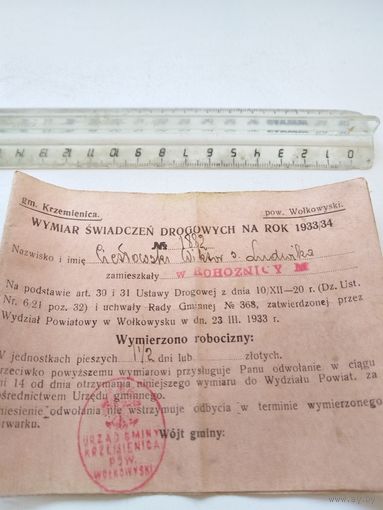 14 13 12 11 10 9 8 7 6 5 4 3 2 1 0
gm. Krzemienica. pow. Wołkowyski.
WYMIAR ŚWIADCZEŃ DROGOWYCH NA ROK 1933/34
№ 1882
Nazwisko i imię Wiktor s. Ludwika
zamieszkały W ROHOZNICY M
Na podstawie art. 30 i 31 Ustawy Drogowej z dnia 10/XII—20 r. (Dz. Ust.
Nr. 6/21 poz. 32) i uchwały Rady Gminnej № 368, zatwierdzonej przez
Wydział Powiatowy w Wołkowysku w dn. 23 III. 1933 r.
Wymierzono robocizny:
W jednostkach pieszych 1 1/2 dni lub złotych.
rzeciwko powyższemu wymiarowi przysługuje Panu odwołanie w ciągu
ni 14 od dnia otrzymania niniejszego wymiaru do Wydziału Powiat. za
ośrednictwem Urzędu gminnego.
niesienie odwołania nie wstrzymuje odbycia w terminie wymierzonego
arwarku.
Wójt gminy:
URZĄD GMINY
KRZEMIENICA
POW.
WOŁKOWYSKI
ay.by